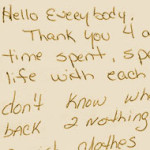 Hello Everybody.
Thank you 4 a
time spent, sp
life with each
don't know wh
back 2 nothing
clothes